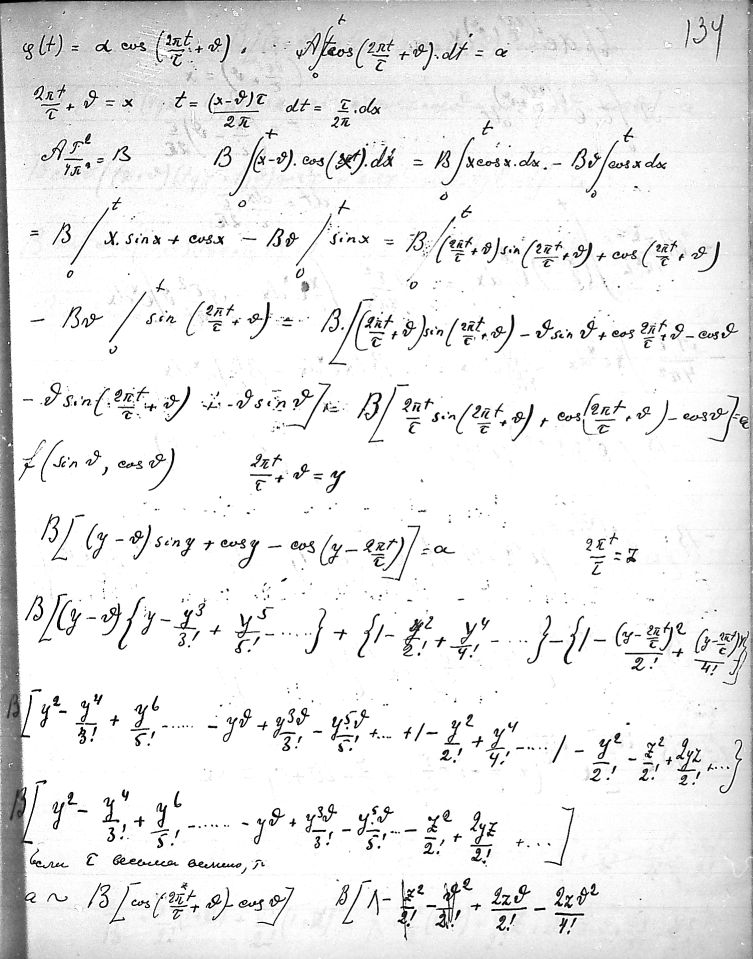 134
φ(t) = α cos (2πt/τ + ϑ). A∫₀ᵗ t cos (2πt/τ + ϑ).dt = a
2πt/τ + ϑ = x t = (x-ϑ)τ/2π dt = τ/2π.dx
Aτ²/4π² = B B∫₀ᵗ(x-ϑ).cos(x).dx = B∫₀ᵗ x cos x.dx. - Bϑ∫₀ᵗ cos x dx
= B /₀ᵗ x. sin x + cos x - Bϑ /₀ᵗ sin x = B /₀ᵗ (2πt/τ + ϑ) sin (2πt/τ + ϑ) + cos (2πt/τ + ϑ)
- Bϑ /₀ᵗ sin (2πt/τ + ϑ) = B.[(2πt/τ + ϑ) sin (2πt/τ + ϑ) - ϑ sin ϑ + cos 2πt/τ + ϑ - cos ϑ
- ϑ sin (2πt/τ + ϑ) + ϑ sin ϑ] = B [2πt/τ sin (2πt/τ + ϑ) + cos (2πt/τ + ϑ) - cos ϑ] = a
f (sin ϑ, cos ϑ) 2πt/τ + ϑ = y
B [(y - ϑ) sin y + cos y - cos (y - 2πt/τ)] = a 2πt/τ = z
B [(y - ϑ) {y - y³/3! + y⁵/5! - .....} + {1 - y²/2! + y⁴/4! - ....} - {1 - (y - 2πt/τ)²/2! + (y - 2πt/τ)⁴/4! }
B [y² - y⁴/3! + y⁶/5! ...... - yϑ + y³ϑ/3! - y⁵ϑ/5! + ... + 1 - y²/2! + y⁴/4! - ..... 1 - y²/2! - z²/2! + 2yz/2! + ....}
B [y² - y⁴/3! + y⁶/5! ....... - yϑ + y³ϑ/3! - y⁵ϑ/5! ... - z²/2! + 2yz/2! + ....]
если τ весьма велико,
a ~ B [cos (2πt/τ + ϑ) - cos ϑ] B [1 - z²/2! - ϑ²/2! + 2zϑ/2! - 2zϑ²/4!